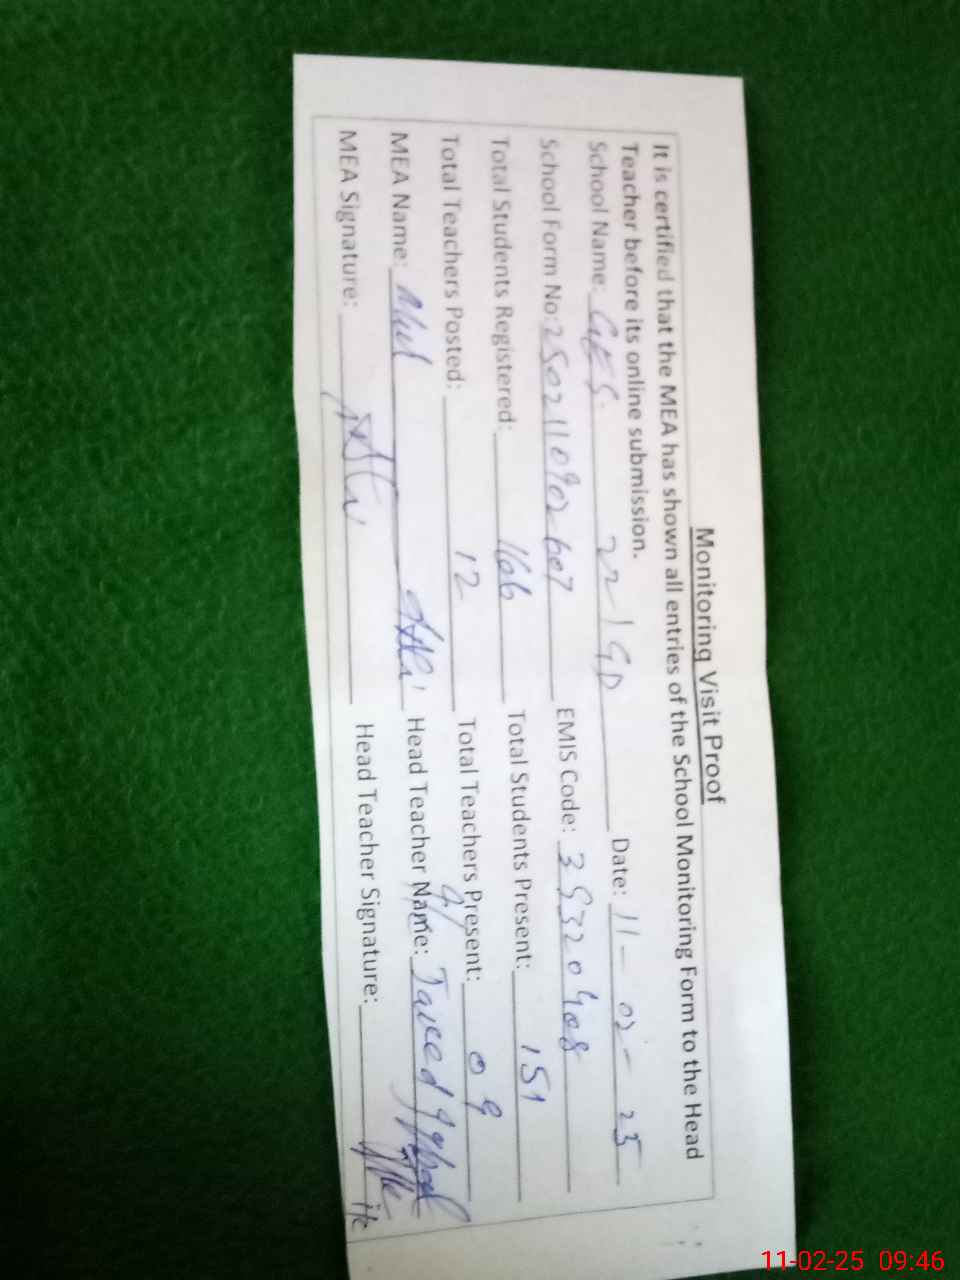 Monitoring Visit Proof
It is certified that the MEA has shown all entries of the School Monitoring Form to the Head
Teacher before its online submission.
School Name: GES. 22 1 GD Date: 11- 02- 25
School Form No: 2502110902607 EMIS Code: 35320408
Total Students Registered: 166 Total Students Present: 151
Total Teachers Posted: 12 Total Teachers Present: 09
MEA Name: Ali Head Teacher Name: Javed Iqbal
MEA Signature: Head Teacher Signature:
11-02-25 09:46